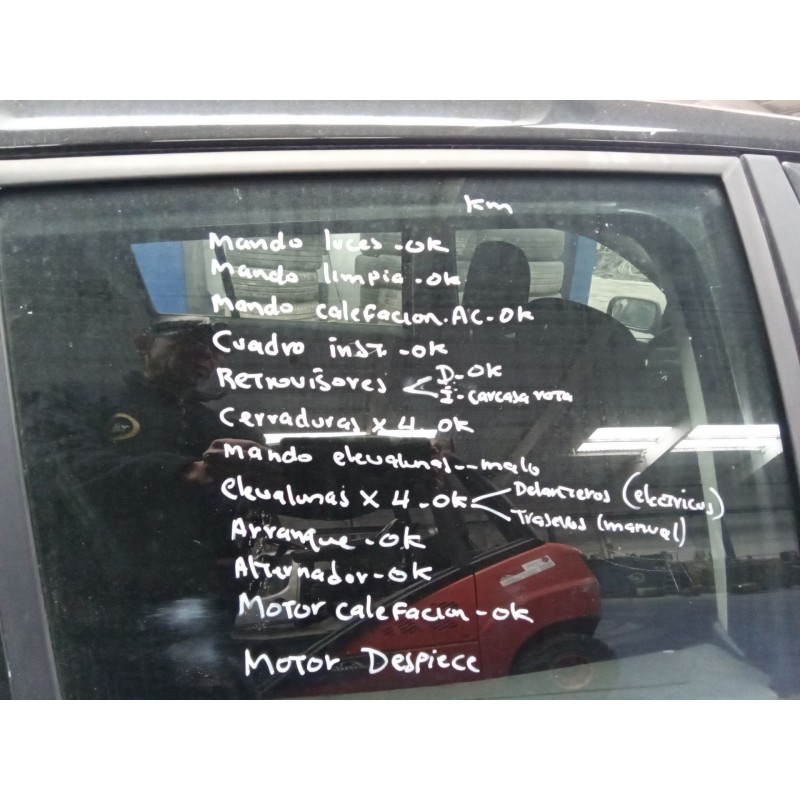 km
Mando luces - OK
Mando limpia - OK
Mando calefacion. AC - OK
Cuadro inst. - OK
Retrovisores < D - OK
I - carcasa rota
Cerraduras x 4 - OK
Mando elevalunas -- malo
elevalunas x 4 - OK < Delanteros (electricos)
Traseros (manual)
Arranque - OK
Alternador - OK
Motor calefacion - OK
Motor Despiece